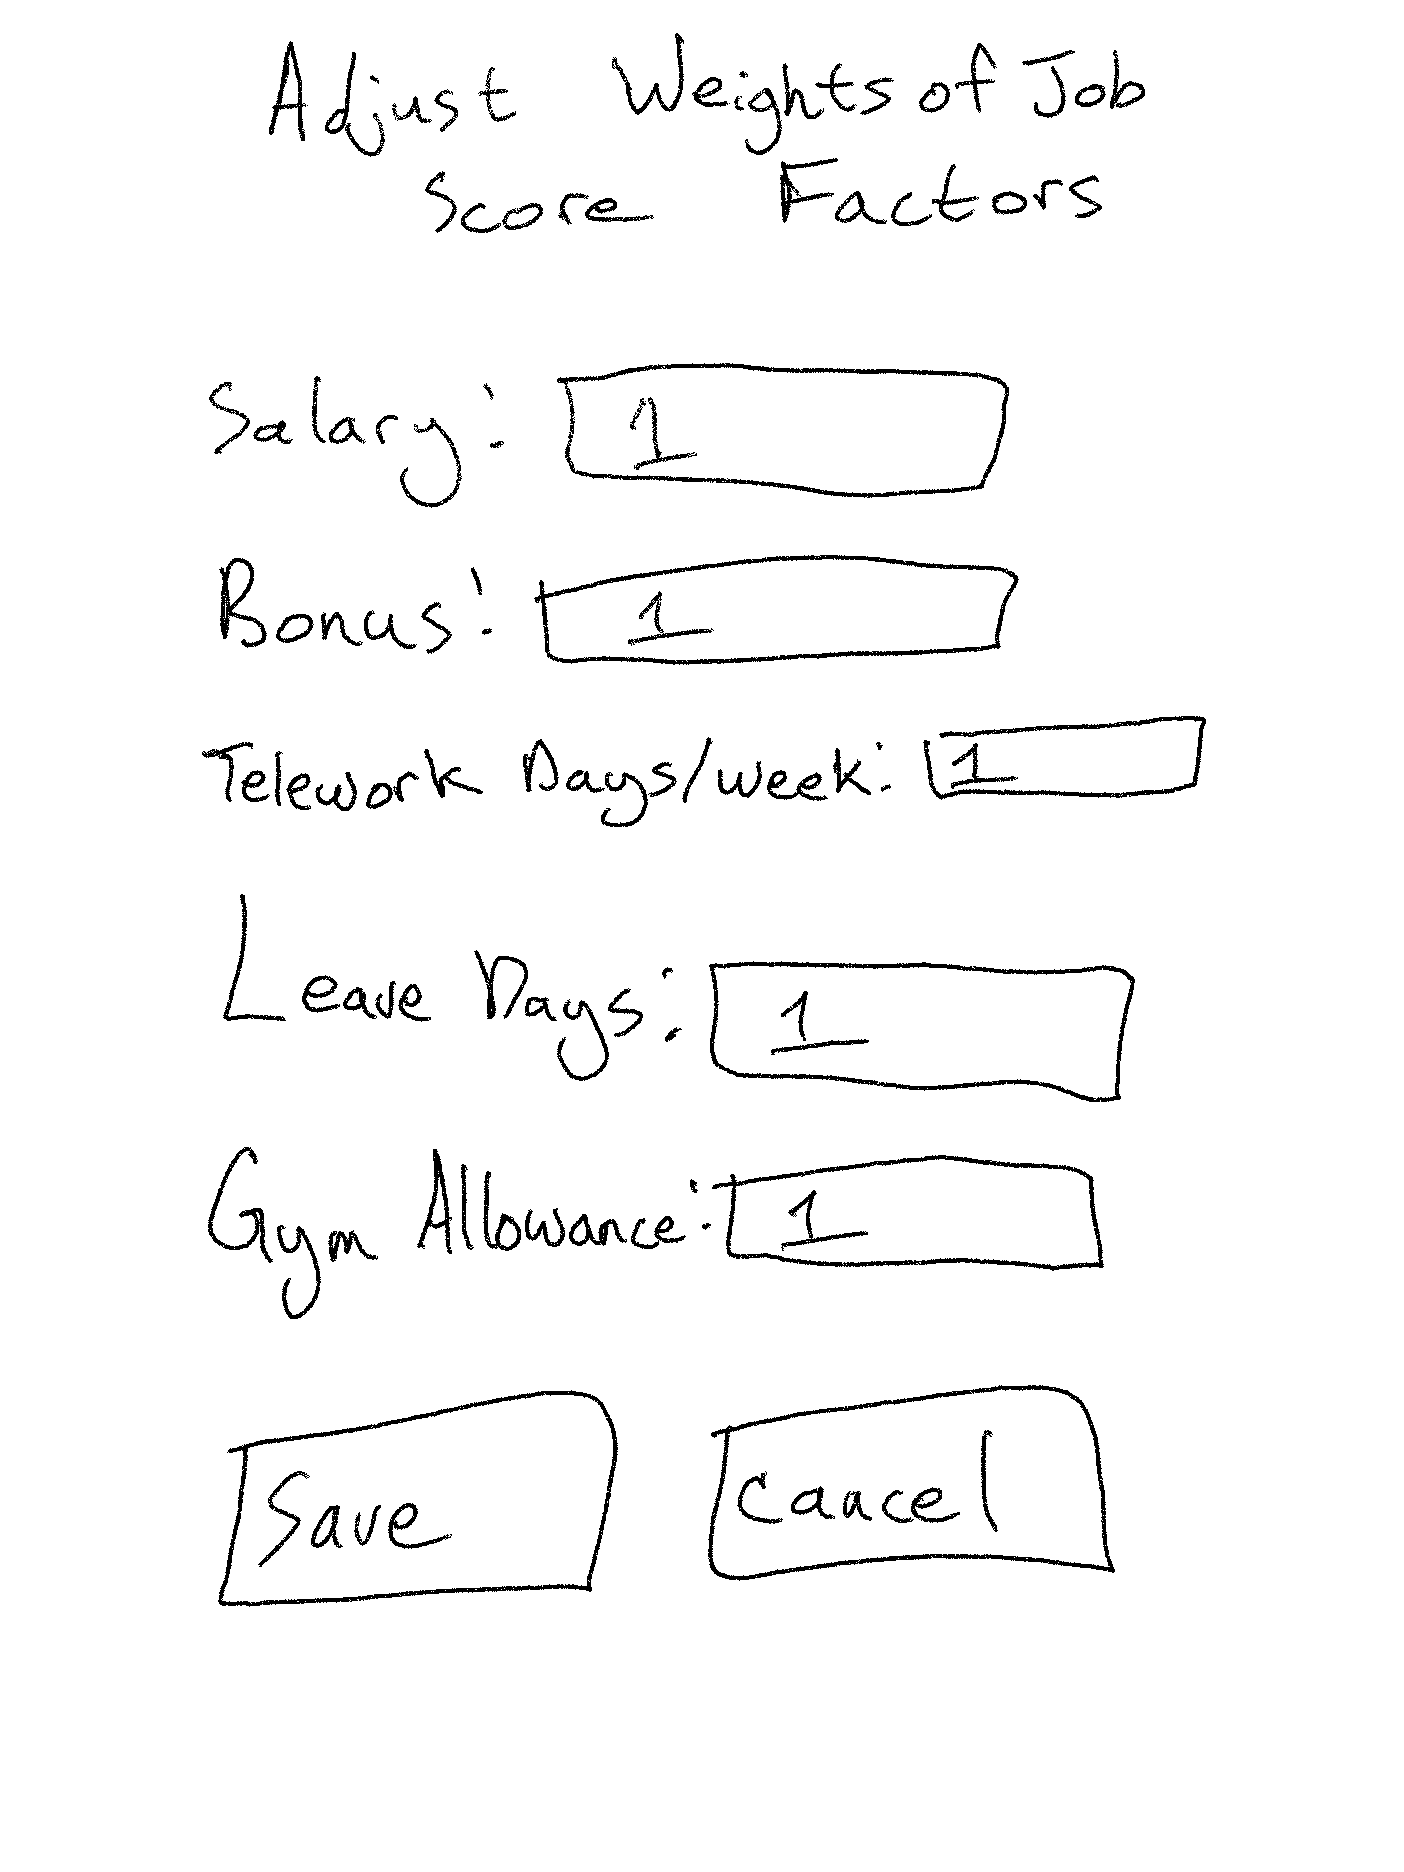 Adjust Weights of Job
Score Factors
Salary: 1
Bonus: 1
Telework Days/week: 1
Leave Days: 1
Gym Allowance: 1
Save Cancel